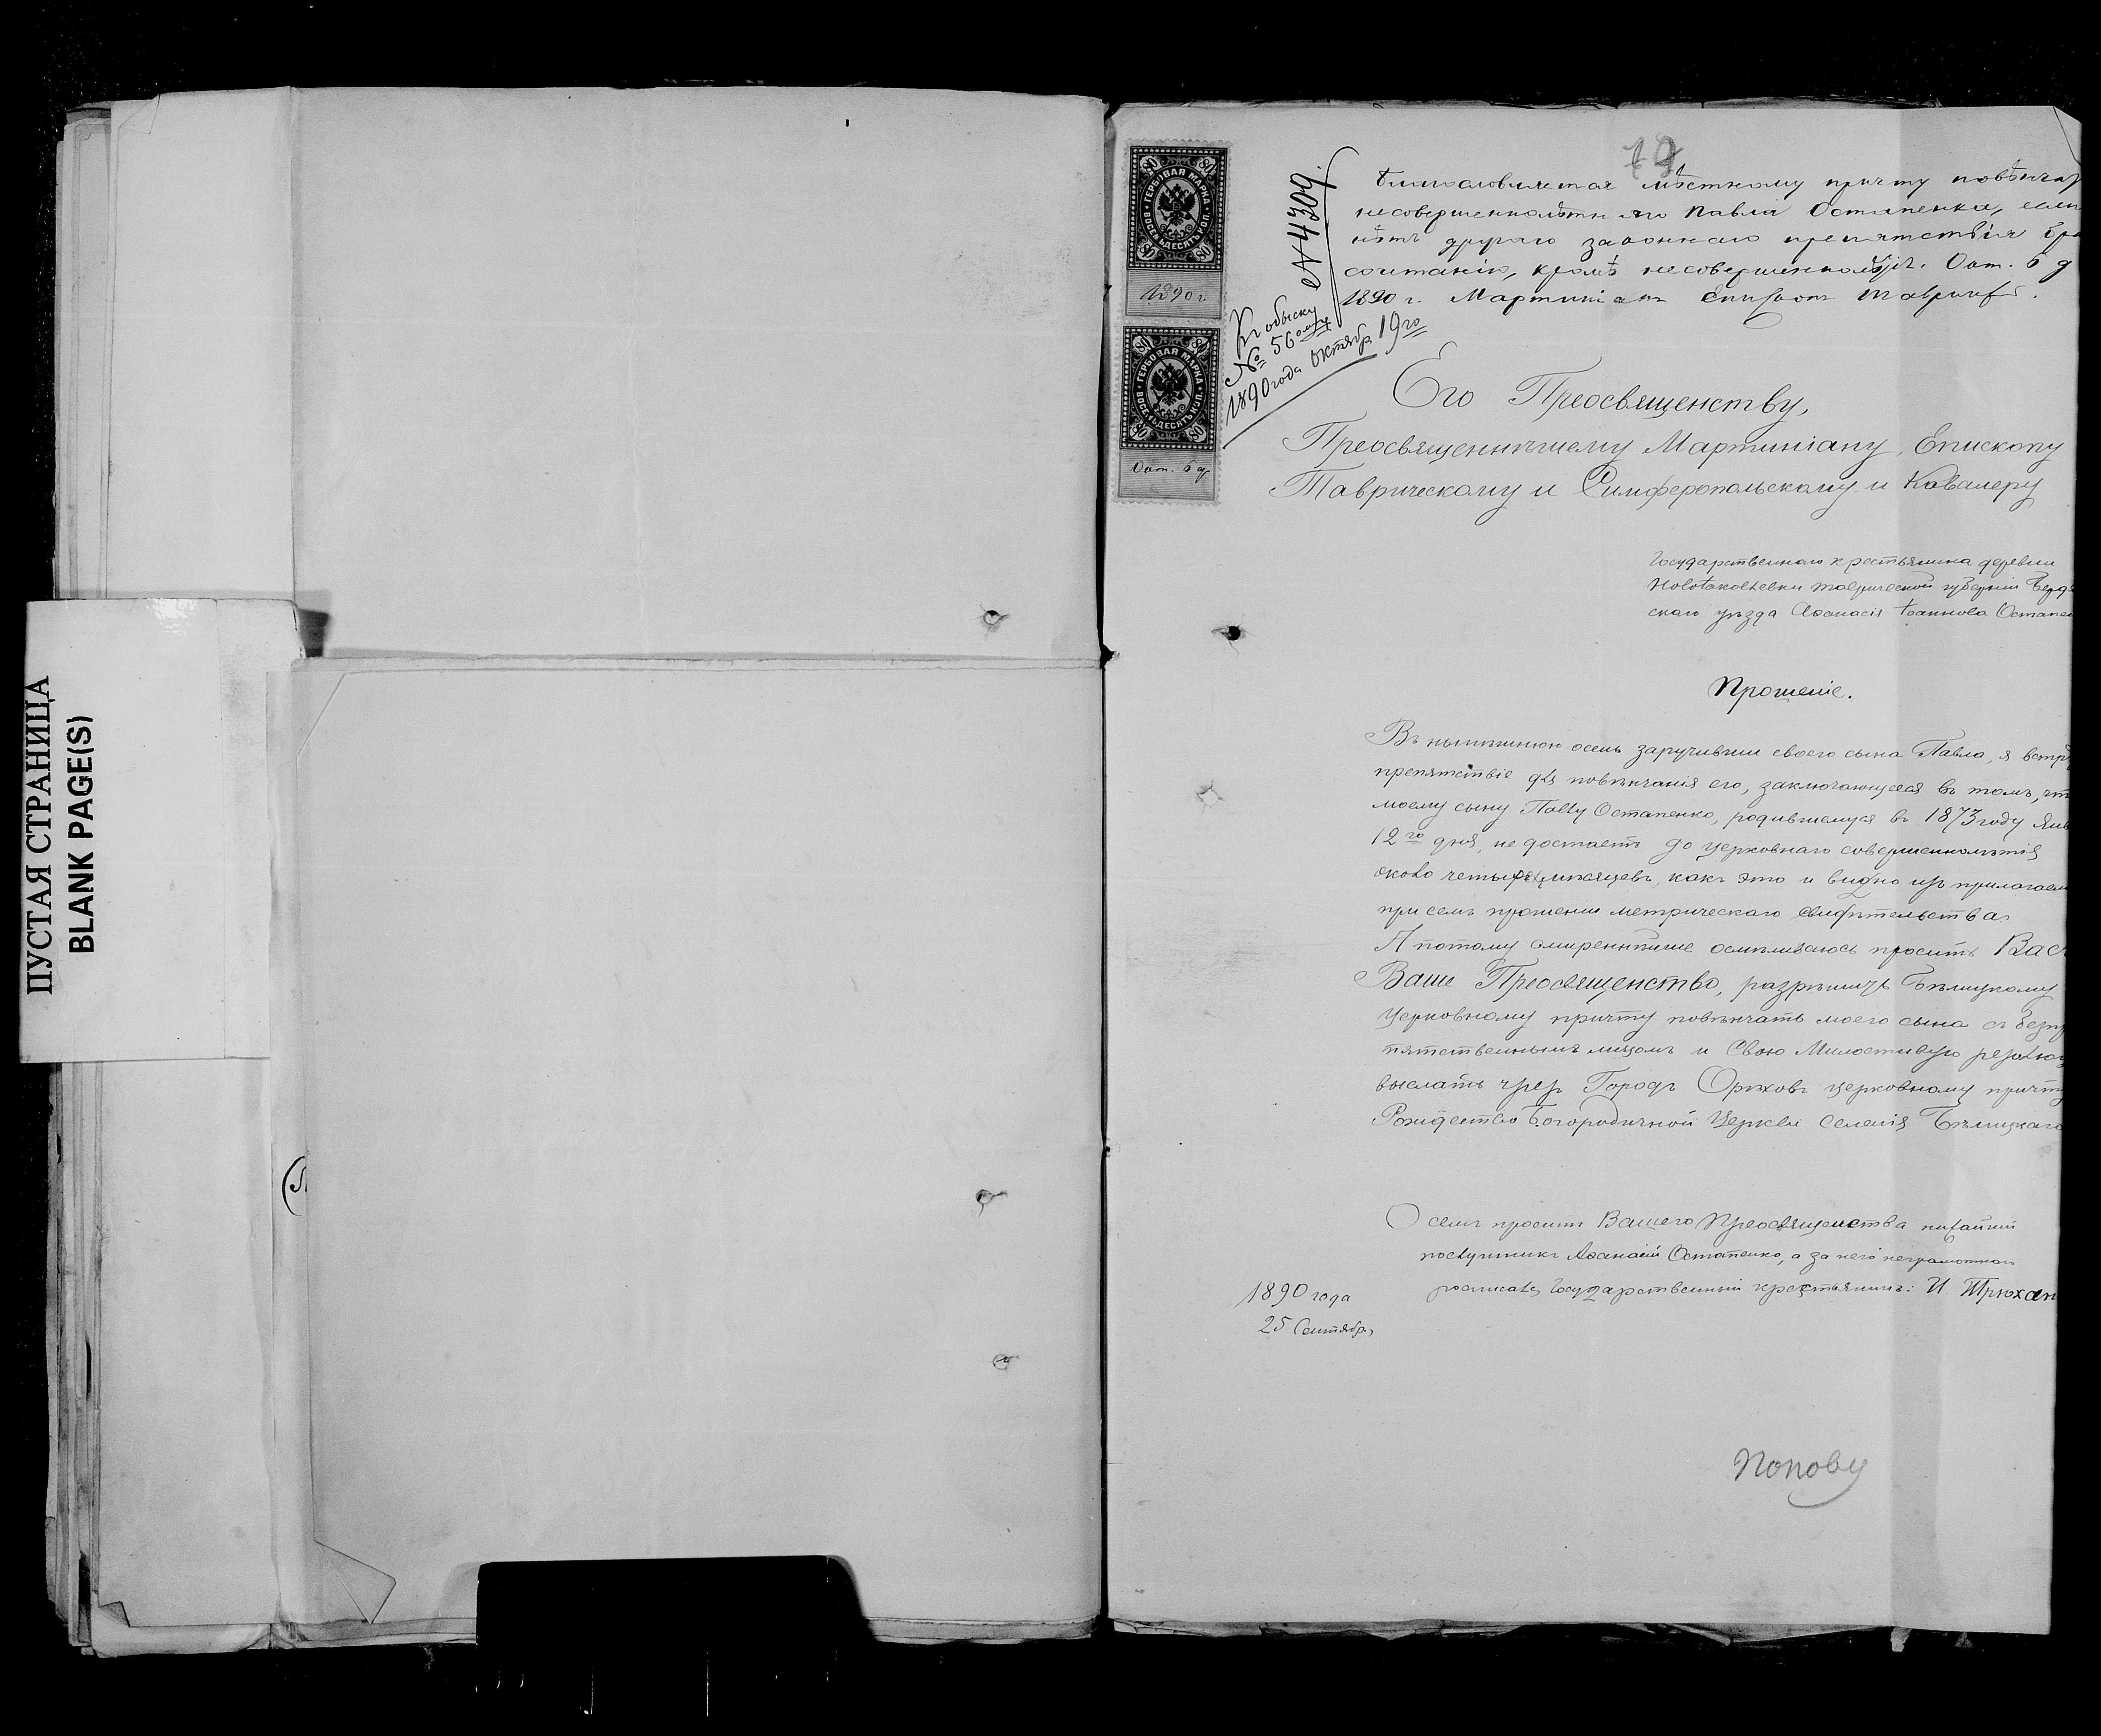 ПУСТАЯ СТРАНИЦА
BLANK PAGE(S)
79
80 80
ГЕРБОВАЯ МАРКА
ВОСЕМЬДЕСЯТЪ КОП.
80 80
1890 г.
80 80
ГЕРБОВАЯ МАРКА
ВОСЕМЬДЕСЯТЪ КОП.
80 80
Окт. 6 д
№ 4309.
Къ обыску
№ 56ому
1890 года октябр. 19го
Благословляется мѣстному причту повѣнчат
несовершеннолѣтняго Павла Остапенка, если
нѣтъ другаго законнаго препятствія бра
сочетанію, кромѣ несовершеннолѣтія. Окт. 6 д
1890 г. Мартиніанъ Епископъ Таврическ.
Его Преосвященству,
Преосвященнѣйшему Мартиніану, Епископу
Таврическому и Симферопольскому и Кавалеру
Государственнаго крестьянина деревни
Новояковлевки Таврической губерніи Бердя
скаго уѣзда Аѳанасія Іоаннова Остапен
Прошеніе.
Въ нынѣшнюю осень заручивши своего сына Павла, я встрѣ
препятствіе для повѣнчанія его, заключающееся въ томъ, чт
моему сыну Павлу Остапенко, родившемуся въ 1873 году Янв
12го дня, не достаетъ до церковнаго совершеннолѣтія
около четырехъ мѣсяцевъ, какъ это и видно изъ прилагаем
при семъ прошеніи метрическаго свидѣтельства.
А потому смиреннѣйше осмѣливаюсь просить Вас
Ваше Преосвященство, разрѣшить Бѣлицкому
Церковному причту повѣнчать моего сына съ безпр
пятственнымъ лицомъ и Свою Милостивую резолюц
выслать чрезъ Городъ Орѣховъ церковному причту
Рождество Богородичной Церкви Селенія Бѣлицкаго
О семъ проситъ Вашего Преосвященства нижайшій
послушникъ Аѳанасій Остапенко, а за него неграмотнаго
росписался Государственный крестьянинъ: И Трюхан
1890 года
25 Сентябр.
Попову